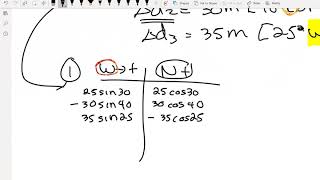 Δd₃ = 35m [25°
① W+ N+
25sin30 25cos30
-30sin40 30cos40
35sin25 -35cos25